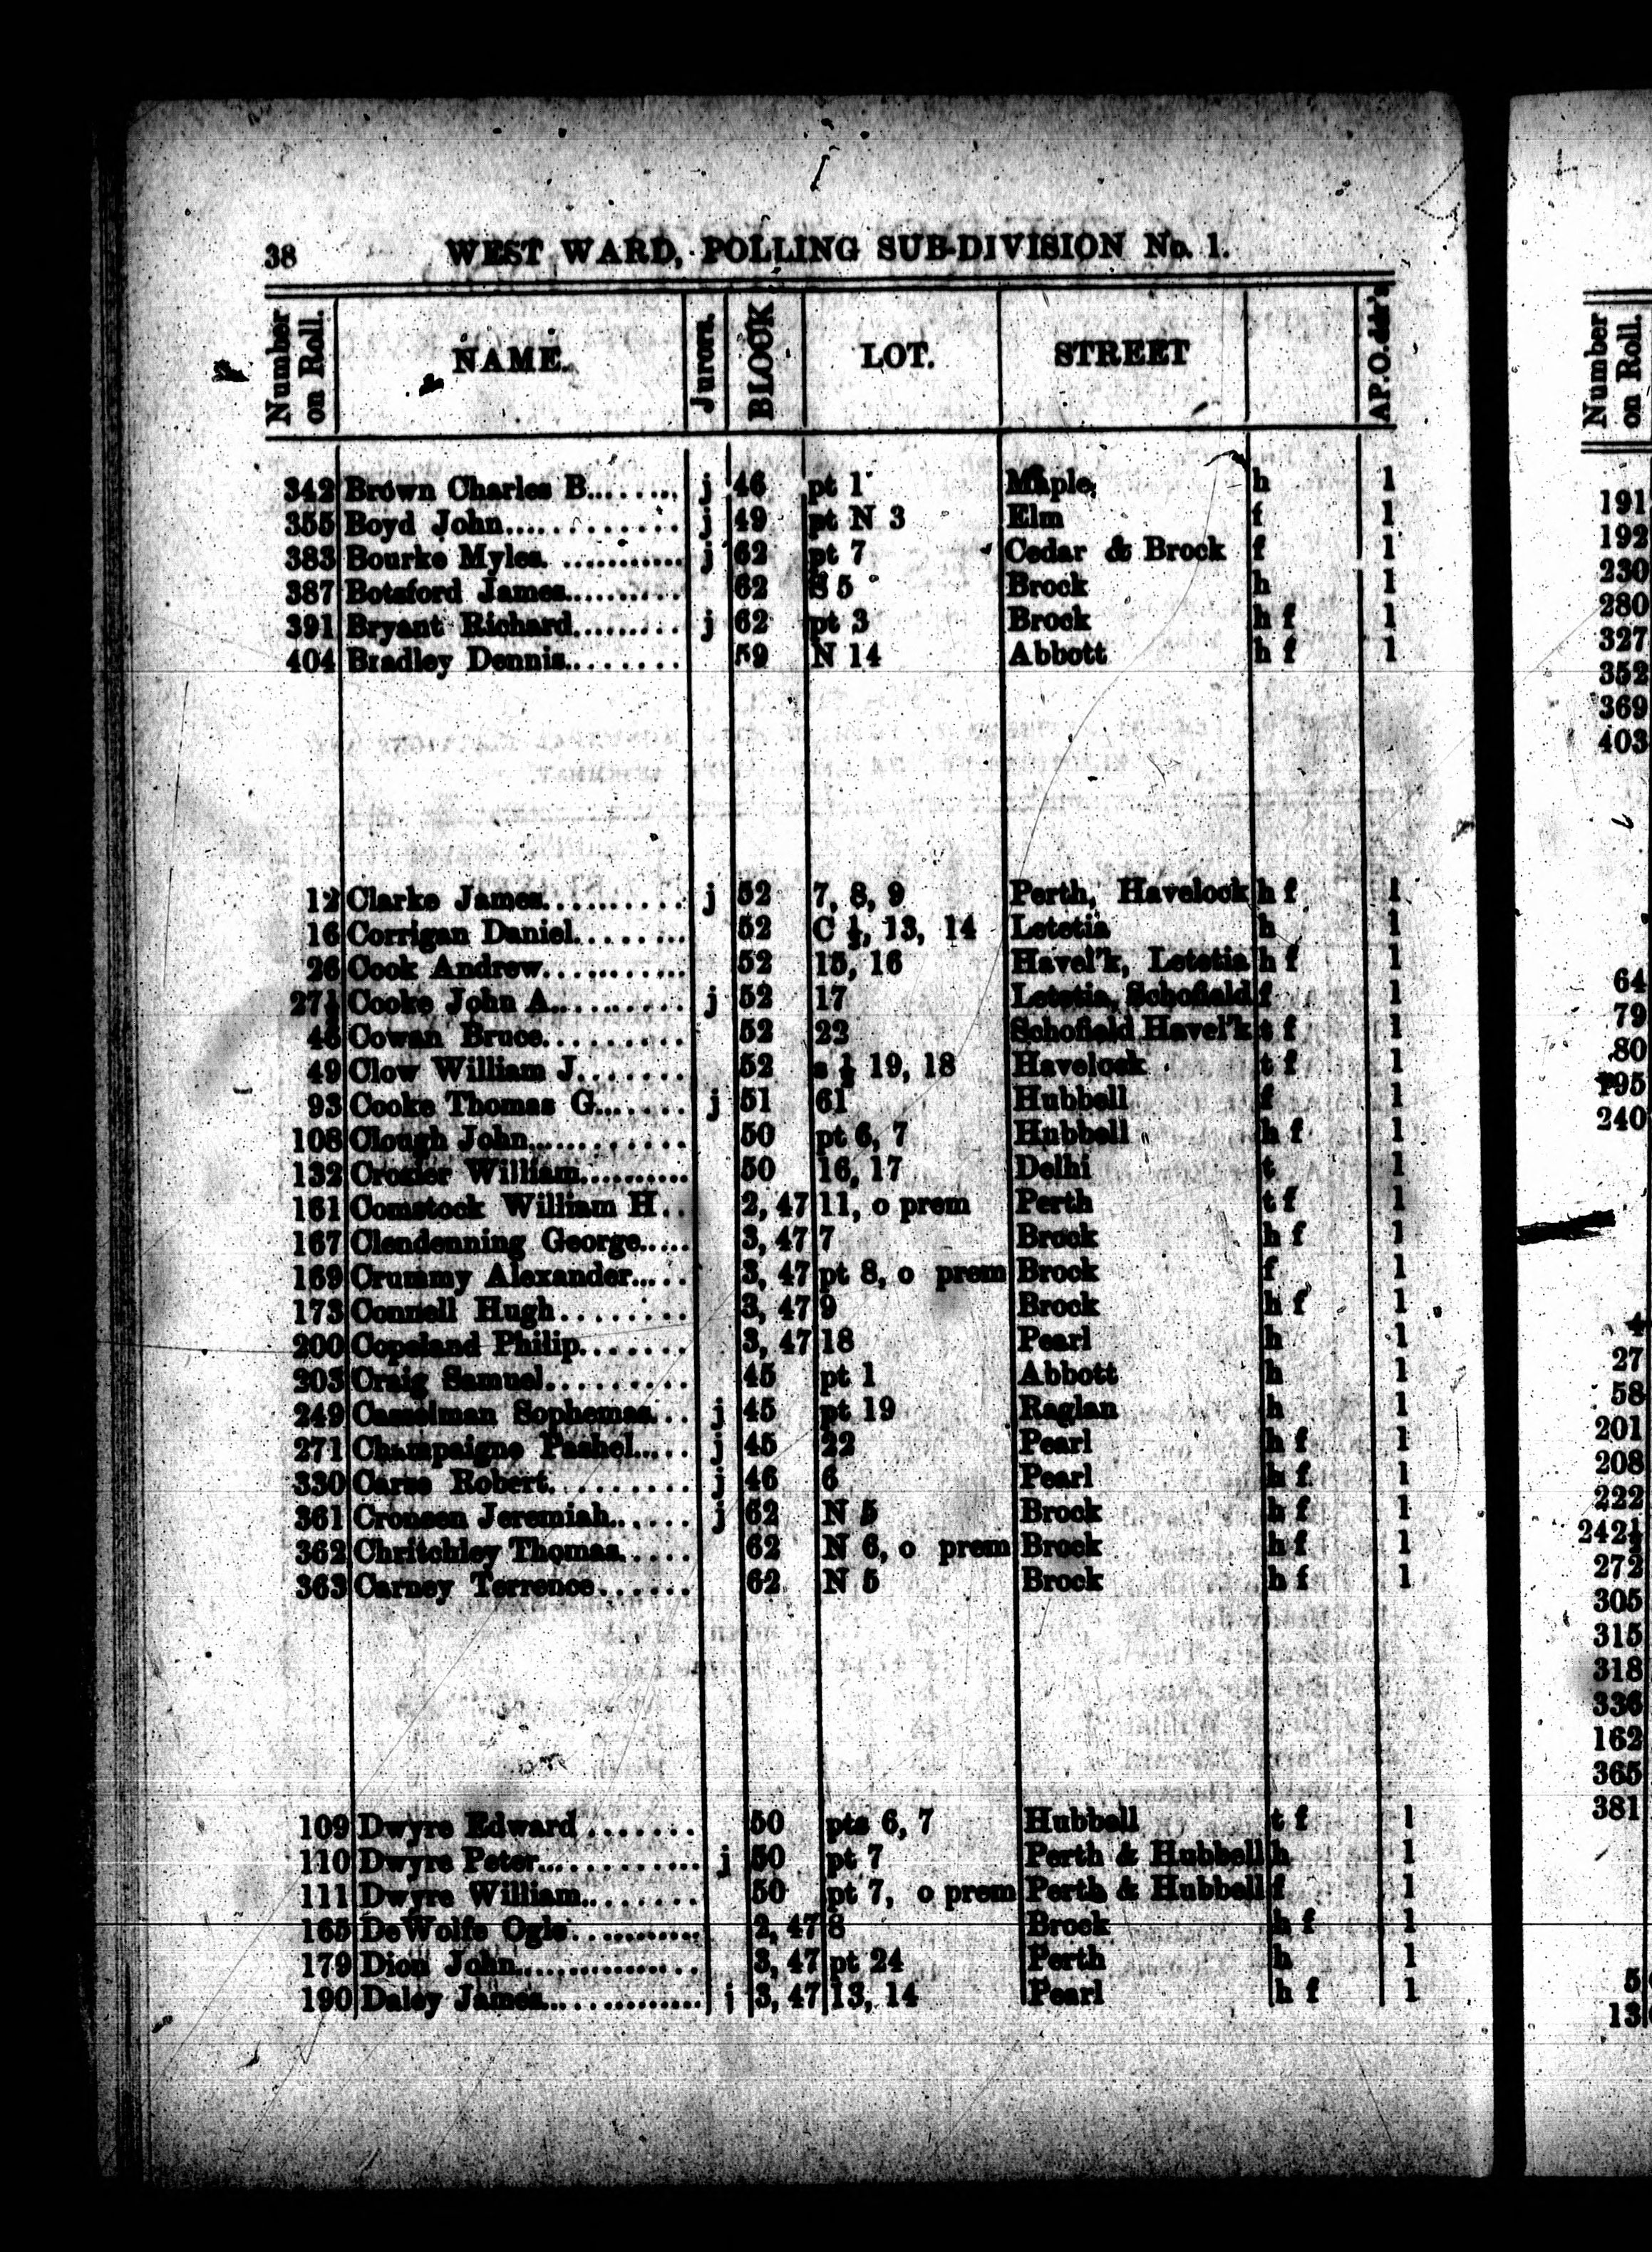 38 WEST WARD, POLLING SUB-DIVISION No. 1.
Number on Roll. NAME. Jurors. BLOCK LOT. STREET AP.O.dd's
342 Brown Charles B........ j 46 pt 1 Maple h 1
355 Boyd John............ j 49 pt N 3 Elm f 1
383 Bourke Myles ............ j 62 pt 7 Cedar & Brock f 1
387 Botsford James.......... 62 S 5 Brock h 1
391 Bryant Richard......... j 62 pt 3 Brock h f 1
404 Bradley Dennis......... 59 N 14 Abbott h f 1
12 Clarke James........... j 52 7, 8, 9 Perth, Havelock h f 1
16 Corrigan Daniel........ 52 C ½, 13, 14 Letetia h 1
26 Cook Andrew............ 52 15, 16 Havel'k, Letetia h f 1
27½ Cooke John A.......... j 52 17 Letetia, Schofield f 1
46 Cowan Bruce.......... 52 22 Schofield Havel'k t f 1
49 Clow William J....... 52 s ½ 19, 18 Havelock t f 1
93 Cooke Thomas G....... j 51 61 Hubbell f 1
108 Clough John............ 50 pt 6, 7 Hubbell h f 1
132 Crozier William.......... 50 16, 17 Delhi t 1
161 Comstock William H.. 2, 47 11, o prem Perth t f 1
167 Clendenning George..... 3, 47 7 Brock h f 1
169 Crummy Alexander..... 3, 47 pt 8, o prem Brock f 1
173 Connell Hugh........ 3, 47 9 Brock h f 1
200 Copeland Philip....... 3, 47 18 Pearl h 1
203 Craig Samuel......... 45 pt 1 Abbott h 1
249 Casselman Sophemas... j 45 pt 19 Raglan h 1
271 Champaigne Pashel..... j 45 22 Pearl h f 1
330 Carse Robert......... j 46 6 Pearl h f 1
361 Cronsen Jeremiah...... j 62 N 5 Brock h f 1
362 Chritchley Thomas..... 62 N 6, o prem Brock h f 1
363 Carney Terrence...... 62 N 5 Brock h f 1
109 Dwyre Edward ....... 50 pts 6, 7 Hubbell t f 1
110 Dwyre Peter............ j 50 pt 7 Perth & Hubbell h 1
111 Dwyre William........ 50 pt 7, o prem Perth & Hubbell f 1
165 DeWolfe Ogle............ 2, 47 8 Brock h f 1
179 Dion John............... 3, 47 pt 24 Perth h 1
190 Daley James............. j 3, 47 13, 14 Pearl h f 1
Number on Roll.
191
192
230
280
327
352
369
403
64
79
80
195
240
4
27
58
201
208
222
242½
272
305
315
318
336
162
365
381
5
13